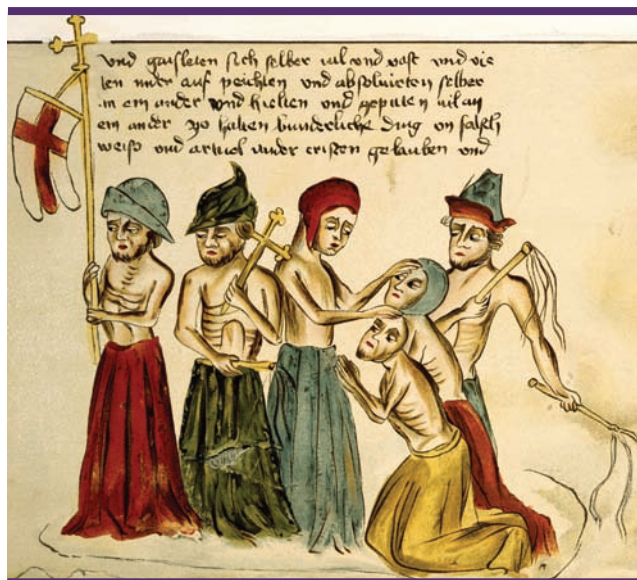 vnd gaisleten sich selber val vnd vast vnd vie
len nider auf peichten vnd absoluirten selber
in ein ander vnd hielten vnd geputen vil an
ein ander yo haben wunderliche ding on falsch
weiss vnd artickl vnder cristen gelauben vnd